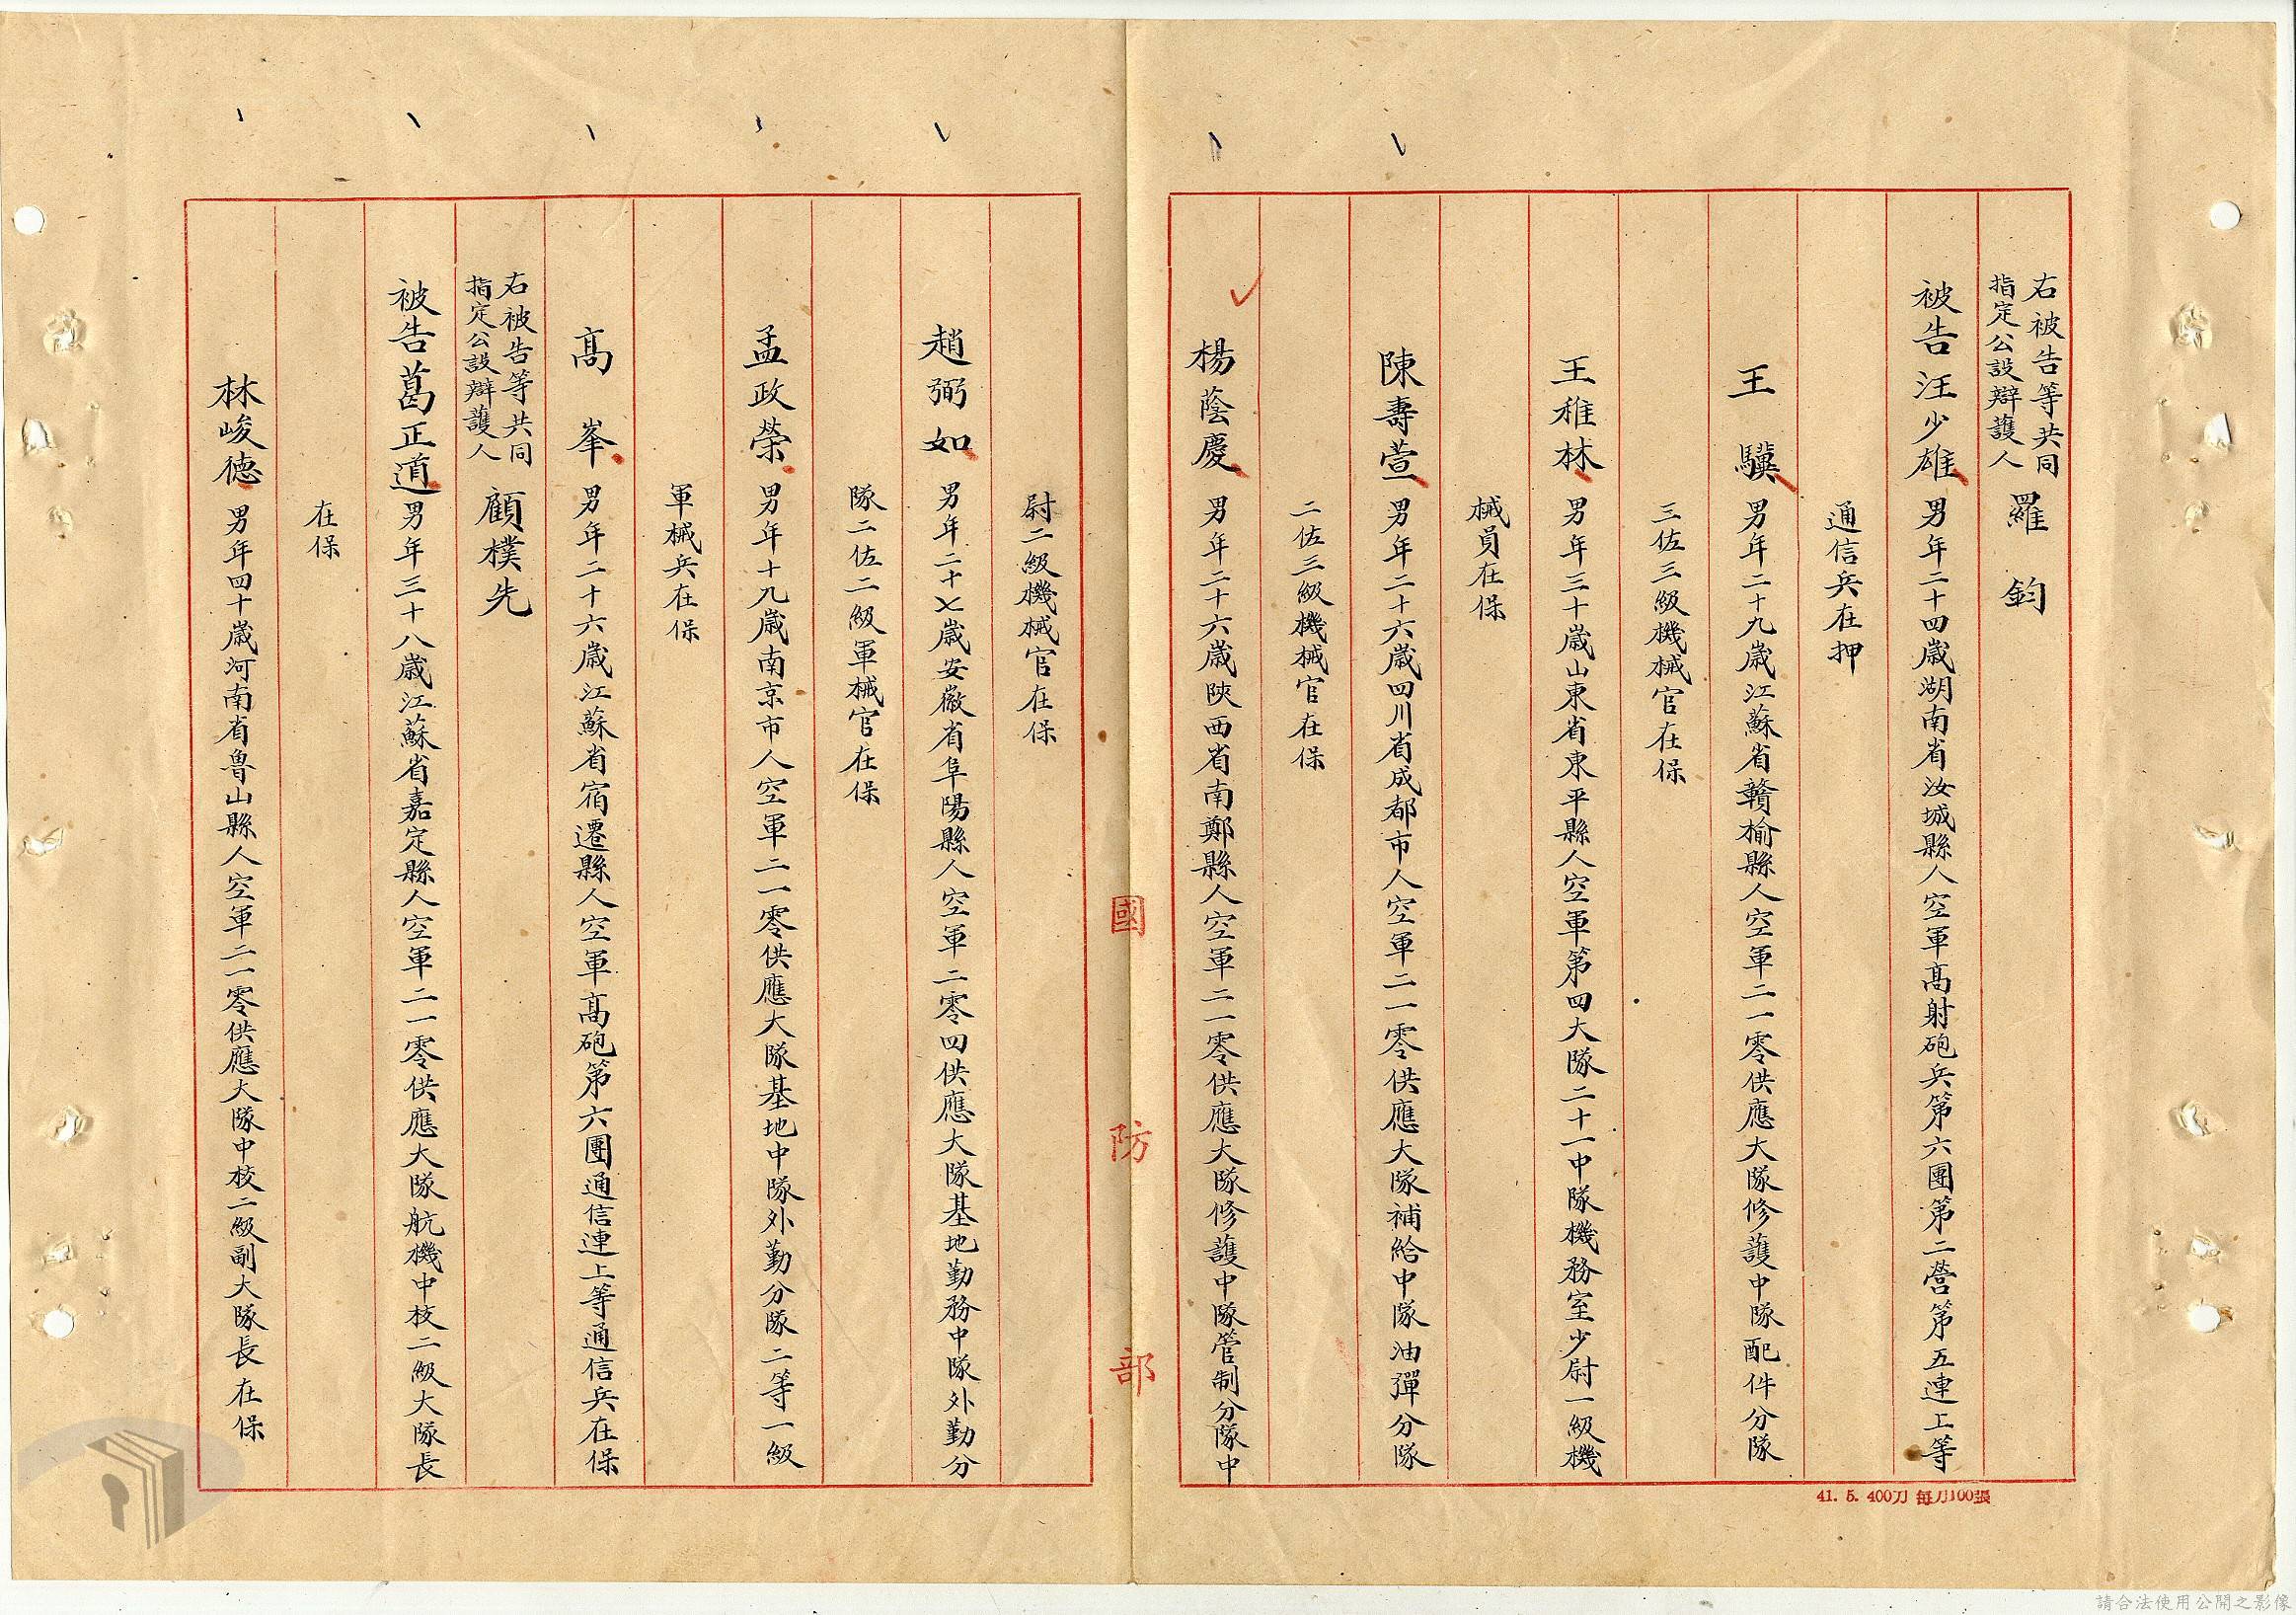 右被告等共同
指定公設辯護人 羅鈞
被告汪少雄男年二十四歲湖南省汝城縣人空軍高射砲兵第六團第二營第五連上等
通信兵在押
王驥男年二十九歲江蘇省贛榆縣人空軍二一零供應大隊修護中隊配件分隊
三佐三級機械官在保
王稚林男年三十歲山東省東平縣人空軍第四大隊二十一中隊機務室少尉一級機
械員在保
陳壽萱男年二十六歲四川省成都市人空軍二一零供應大隊補給中隊油彈分隊
二佐三級機械官在保
楊蔭慶男年二十六歲陝西省南鄭縣人空軍二一零供應大隊修護中隊管制分隊中
尉二級機械官在保
趙弼如男年二十七歲安徽省阜陽縣人空軍二零四供應大隊基地勤務中隊外勤分
隊二佐二級軍械官在保
孟政榮男年十九歲南京市人空軍二一零供應大隊基地中隊外勤分隊二等一級
軍械兵在保
高峯男年二十六歲江蘇省宿遷縣人空軍高砲第六團通信連上等通信兵在保
右被告等共同
指定公設辯護人 顧樸先
被告葛正道男年三十八歲江蘇省嘉定縣人空軍二一零供應大隊航機中校二級大隊長
在保
林峻德男年四十歲河南省魯山縣人空軍二一零供應大隊中校二級副大隊長在保
國防部
41. 5. 400刀 每刀100張
請合法使用公開之影像